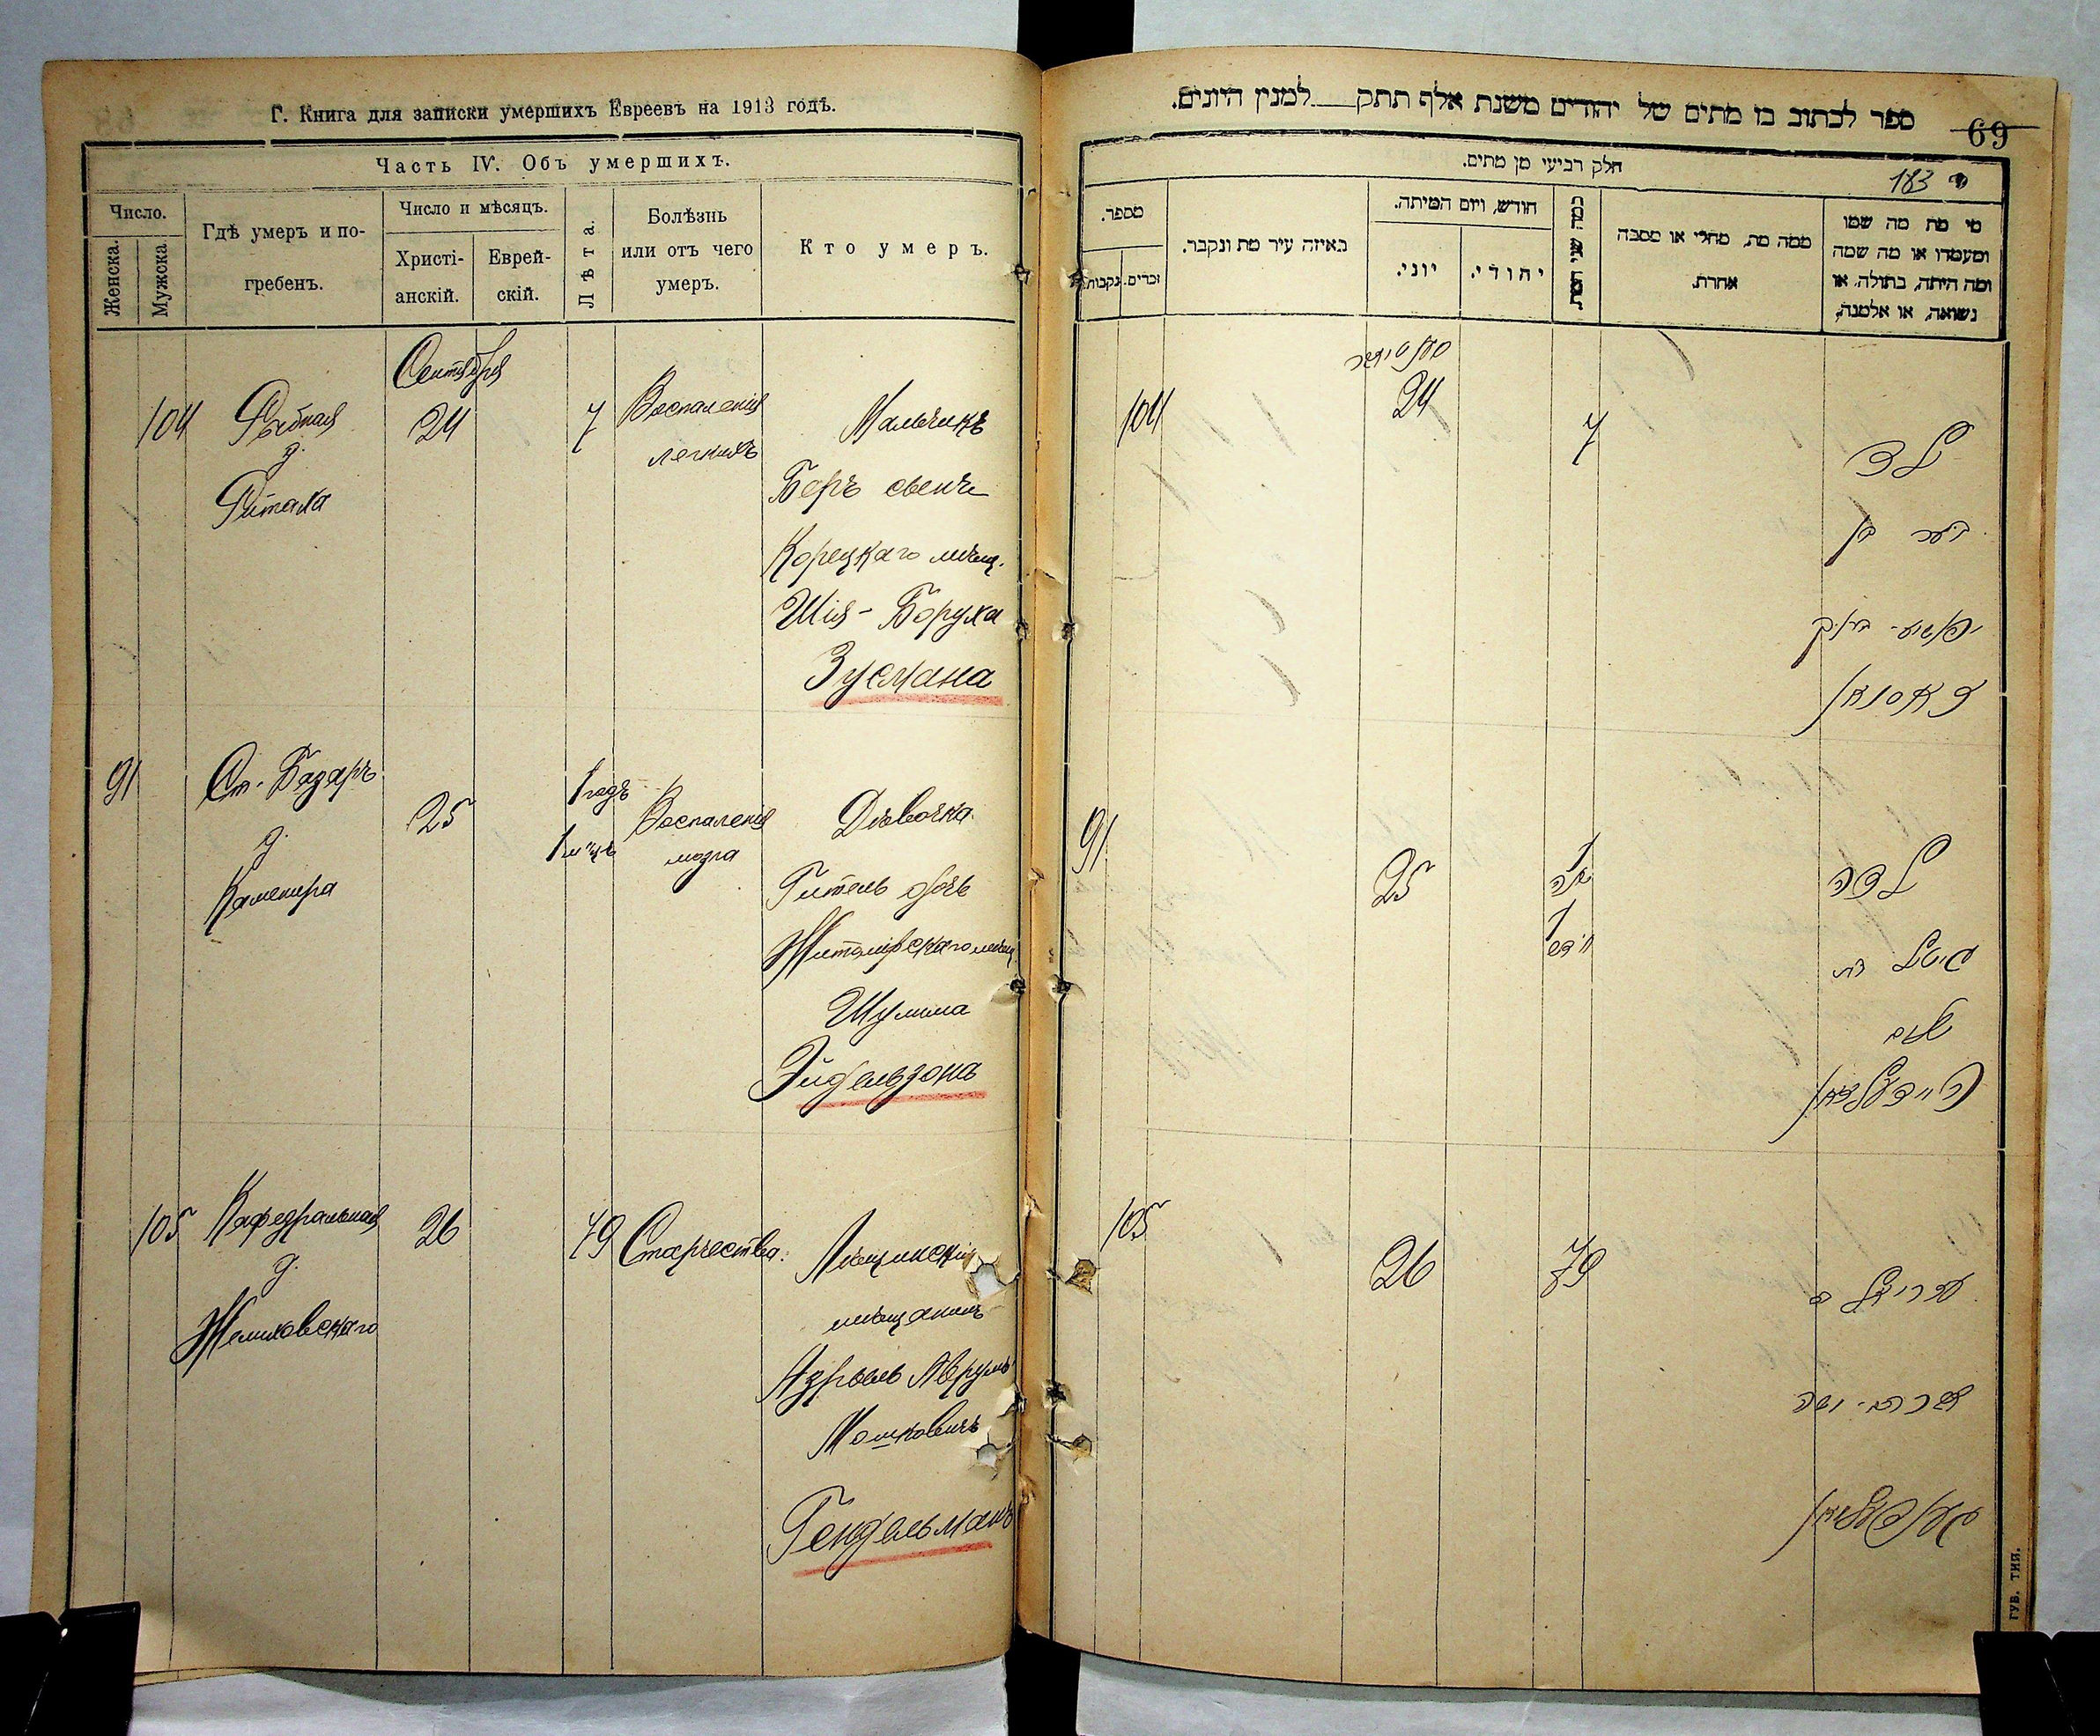 Г. Книга для записки умершихъ Евреевъ на 1913 годъ.
Часть IV. Объ умершихъ.
Число.
Женска.
Мужска.
Гдѣ умеръ и по-
гребенъ.
Число и мѣсяцъ.
Христі-
анскій.
Еврей-
скій.
Лѣта.
Болѣзнь
или отъ чего
умеръ.
Кто умеръ.
Сентября
104
Рыбная
д.
24
7
Воспаленія
легкихъ
Мальчикъ
Беръ сынъ
Корецкаго мѣщ.
Шія-Боруха
Зусмана
91
Ст. Базаръ
д.
25
1 годъ
1 м-цъ
Воспаленія
мозга
Дѣвочка
Гитель дочь
Житомірскаго мѣщ.
Шулима
Эйдельзона
105
Кафедральная
д.
26
79
Старчества.
мѣщанинъ
Азріель Аврумъ
Мошковичъ
Гендельманъ
ספר לכתוב בו מתים של יהודים משנת אלף תתק___למנין היונים.
69
חלק רביעי מן מתים.
183
מספר.
זכרים.
נקבות.
באיזה עיר מת ונקבר.
חודש, ויום המיתה.
יוני.
יהודי.
ממה מת, מחלי או מסבה
אחרת.
מי מת מה שמו
ומעמדו או מה שמה
ומה היתה, בתולה, או
נשואה, או אלמנה,
104
24
7
ילד
בער בן
זוסמאן
91
25
1
שנה
1
חדש
ילדה
גיטל בת
שלום
איידעלזאן
105
26
79
עזריאל
אברהם-משה
הענדעלמאן
ГУБ. ТИП.